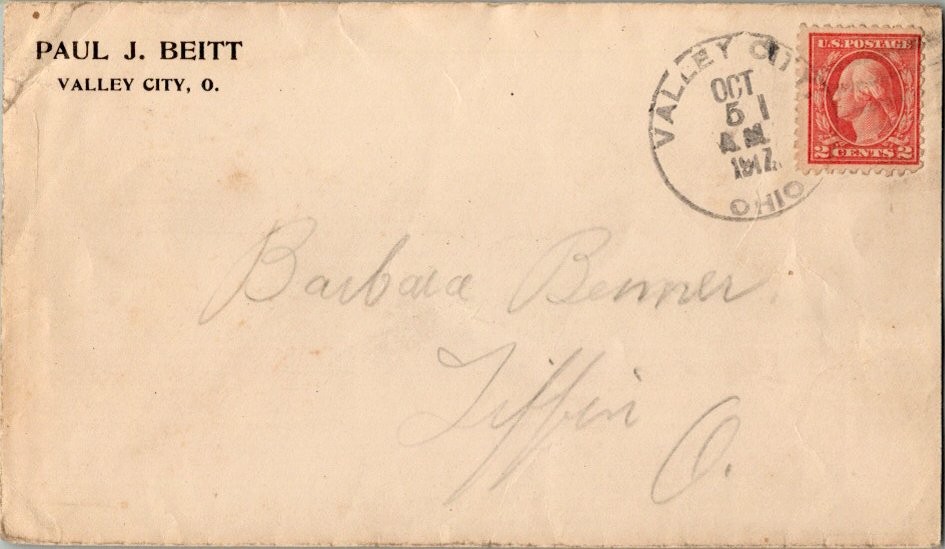 PAUL J. BEITT
VALLEY CITY, O.
VALLEY CITY
OCT
5 1
A.M.
1917.
OHIO
U.S. POSTAGE
2 CENTS 2
Barbara Benner.
Tiffin
O.